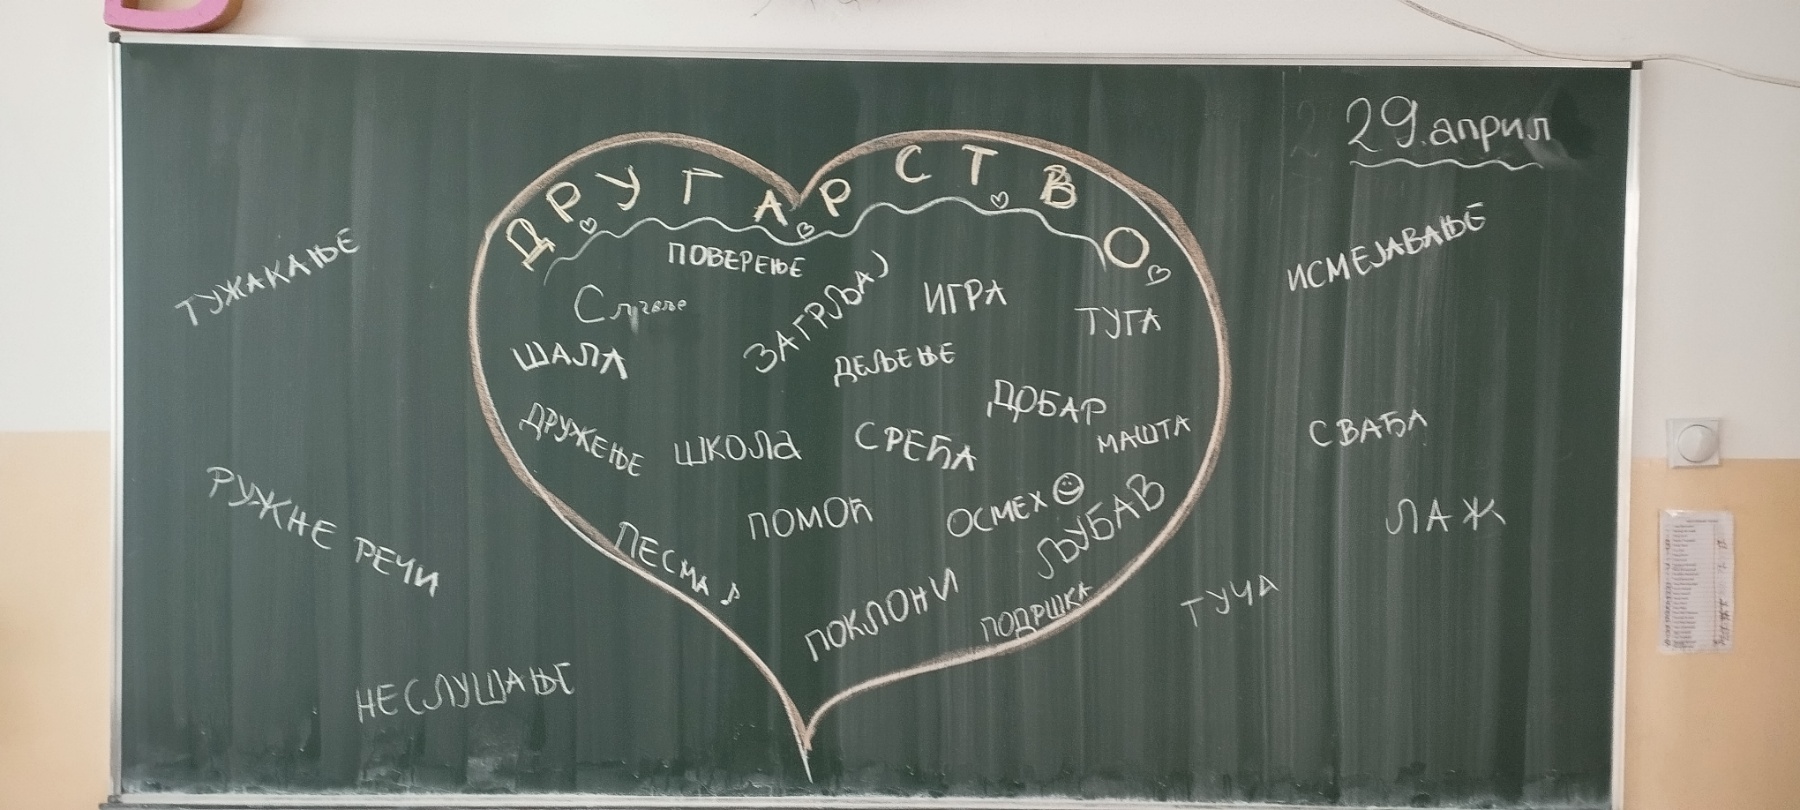 29. април
ДРУГАРСТВО
ПОВЕРЕЊЕ
ТУЖАКАЊЕ
ИСМЕЈАВАЊЕ
ЗАГРЉАЈ
ИГРА
ТУГА
ШАЛА
ДЕЉЕЊЕ
ДОБАР
ДРУЖЕЊЕ
ШКОЛА
СРЕЋА
МАШТА
СВАЂА
РУЖНЕ РЕЧИ
ПОМОЋ
ОСМЕХ
ЉУБАВ
ЛАЖ
ПЕСМА
ПОКЛОНИ
ПОДРШКА
ТУЧА
НЕСЛУШАЊЕ